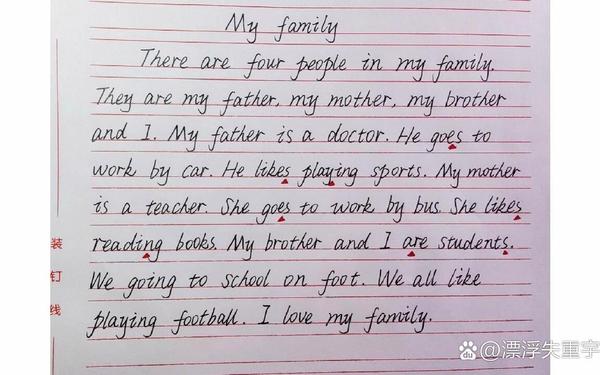 My family
There are four people in my family.
They are my father, my mother, my brother
and I. My father is a doctor. He goes to
work by car. He likes playing sports. My mother
is a teacher. She goes to work by bus. She likes
reading books. My brother and I are students.
We going to school on foot. We all like
playing football. I love my family.
装
钉
线
du @漂浮失重宇